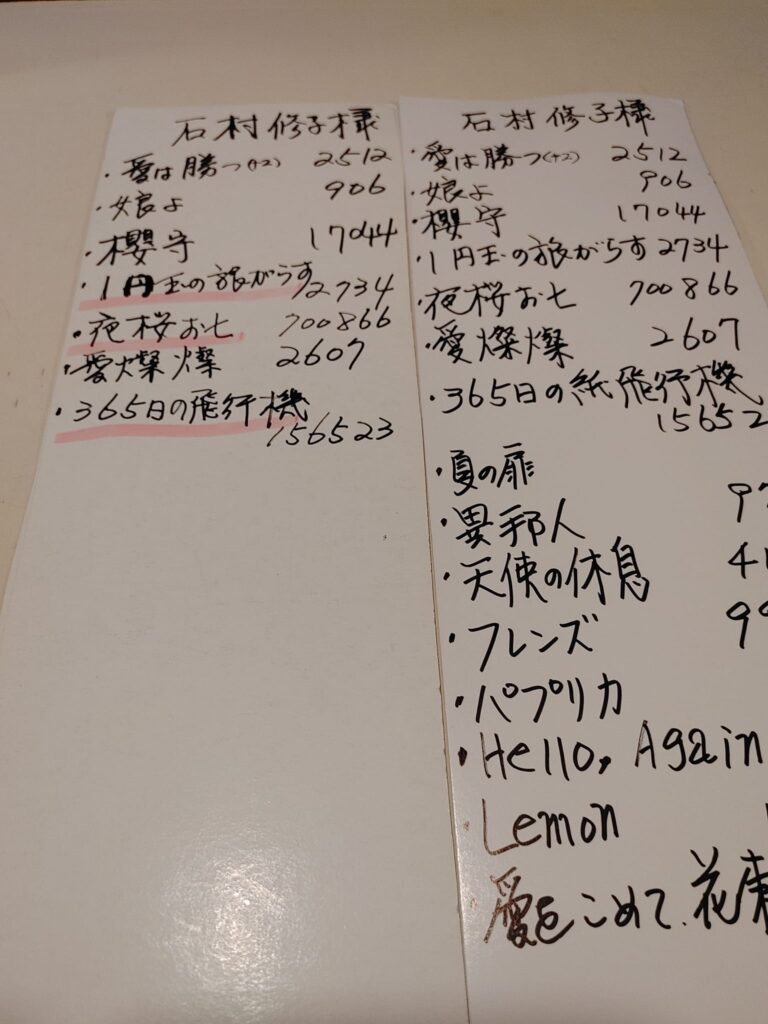 石村修子様
・愛は勝つ(+2) 2512
・娘よ 906
・櫻守 17044
・1円玉の旅がらす 2734
・夜桜お七 700866
・愛燦燦 2607
・365日の飛行機
156523
石村修子様
・愛は勝つ(+2) 2512
・娘よ 906
・櫻守 17044
・1円玉の旅がらす 2734
・夜桜お七 700866
・愛燦燦 2607
・365日の紙飛行機
15652
・夏の扉
・異邦人 9
・天使の休息 41
・フレンズ 99
・パプリカ
・Hello, Again
・Lemon
愛をこめて、花束